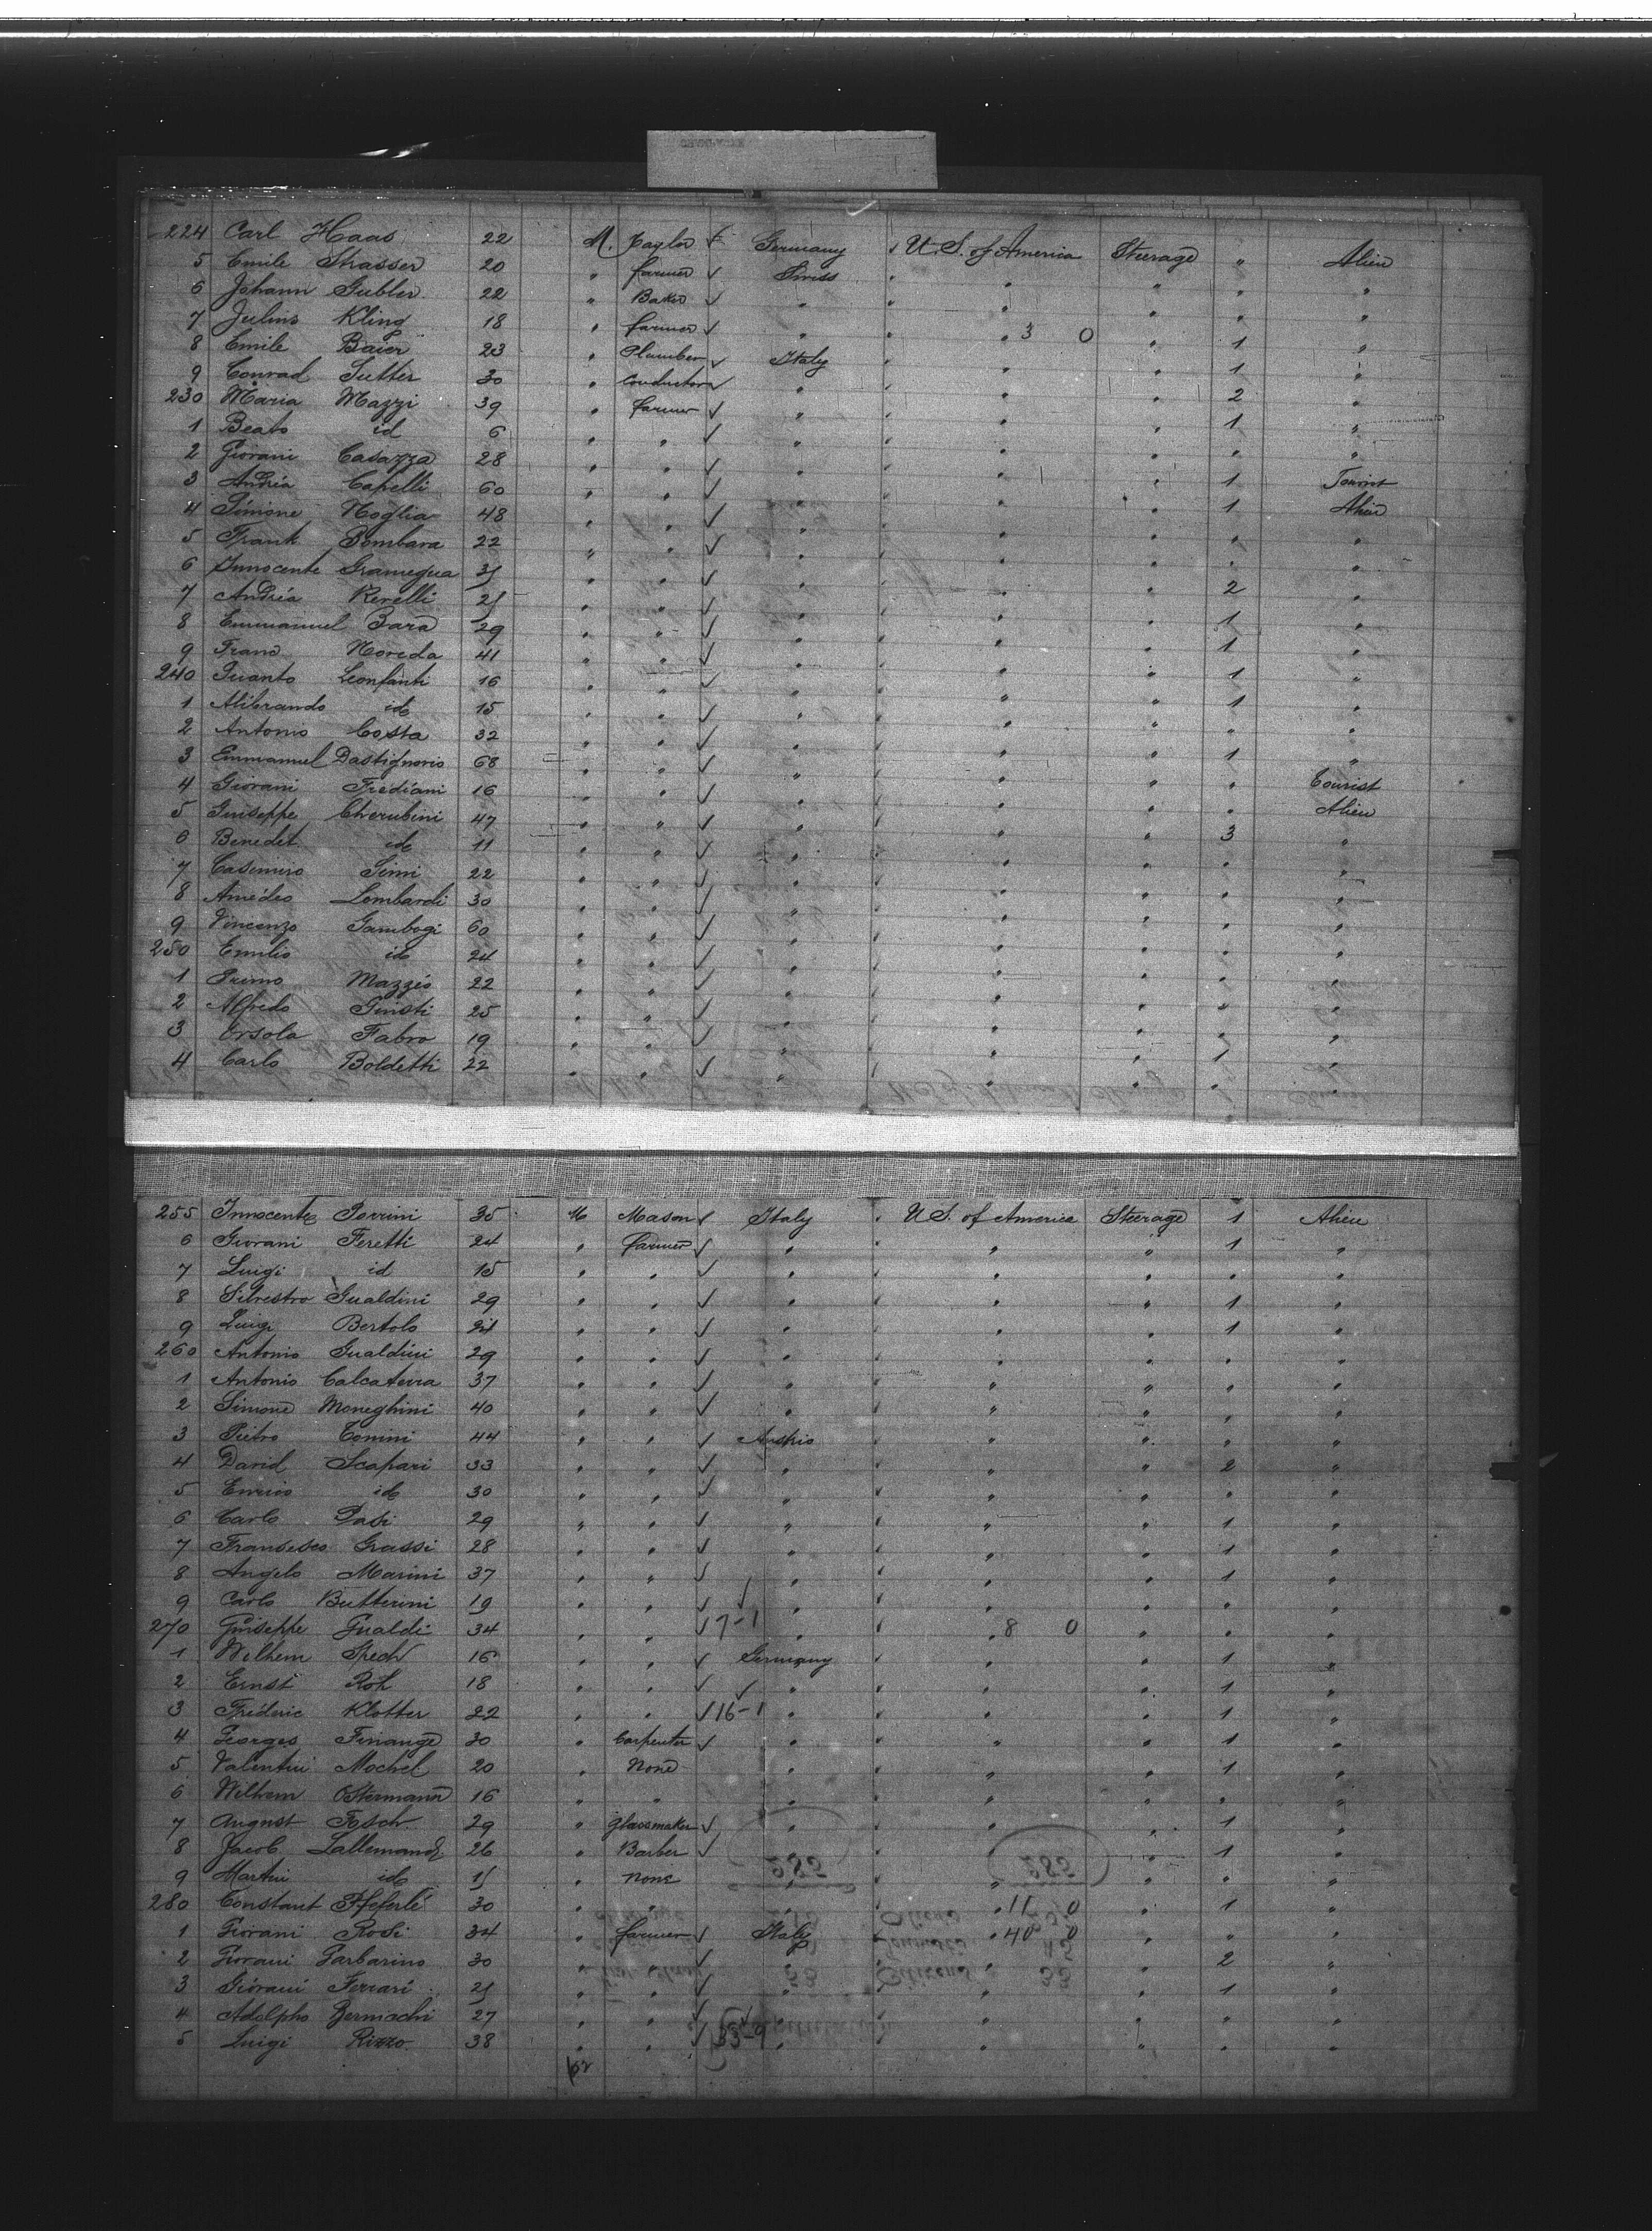 224 Carl Haas 22 M. Taylor Germany U.S. of America Steerage " Alien
5 Emile Strasser 20 " farmer Swiss " " " " "
6 Johann Gubler 22 " Baker " " " " " "
7 Julius Kling 18 " farmer " " " 3 0 " 1 "
8 Emile Baier 23 " Plumber Italy " " " 1 "
9 Conrad Sutter 30 " Conductor " " " " 2 "
230 Maria Mazzi 39 " farmer " " " " 1 "
1 Beato id 6 " " " " " " " "
2 Giovani Casazza 28 " " " " " " 1 Tourist
3 Andréa Capelli 60 " " " " " " 1 Alien
4 Simone Noglia 48 " " " " " " " "
5 Frank Bombara 22 " " " " " " " "
6 Innocente Gramegna 35 " " " " " " 2 "
7 Andréa Revelli 25 " " " " " " 1 "
8 Emmanuel Bara 29 " " " " " " 1 "
9 Franc Noreda 41 " " " " " " 1 "
240 Quanto Leonfanti 16 " " " " " " 1 "
1 Alibrando id 15 " " " " " " " "
2 Antonio Costa 32 " " " " " " 1 "
3 Emmanuel Dastignoris 68 " " " " " " " Tourist
4 Giovani Frediani 16 " " " " " " " Alien
5 Guiseppe Cherubini 47 " " " " " " 3 "
6 Benedet. id 11 " " " " " " " "
7 Casimiro Simi 22 " " " " " " " "
8 Amédeo Lombardi 30 " " " " " " " "
9 Vincenzo Gambogi 60 " " " " " " " "
250 Emilio id 24 " " " " " " " "
1 Primo Mazzéo 22 " " " " " " " "
2 Alfredo Giusti 25 " " " " " " " "
3 Orsola Fabro 19 " " " " " " 1 "
4 Carlo Boldetti 22 " " " " " " " "
255 Innocente Perrini 35 M Mason Italy " U.S. of America Steerage 1 Alien
6 Giovani Feretti 24 " farmer " " " " 1 "
7 Luigi id 15 " " " " " " " "
8 Silvestro Gualdini 29 " " " " " " 1 "
9 Luigi Bertolo 24 " " " " " " 1 "
260 Antonio Gualdini 29 " " " " " " " "
1 Antonio Calcaterra 37 " " " " " " " "
2 Simone Moneghini 40 " " " " " " " "
3 Pietro Tonini 44 " " Austria " " " " "
4 David Scapari 33 " " " " " " 2 "
5 Enrico id 30 " " " " " " " "
6 Carlo Pasi 29 " " " " " " 1 "
7 Fransesco Grassi 28 " " " " " " 1 "
8 Angelo Marini 37 " " " " " " 1 "
9 Carlo Butterini 19 " " " " " " " "
270 Guiseppe Gualdi 34 " " 7-1 " " " 8 0 " " "
1 Wilhem Spech 16 " " Germany " " " 1 "
2 Ernst Roh 18 " " " " " " 1 "
3 Fréderic Klotter 22 " " 16-1 " " " " 1 "
4 Georges Finange 30 " Carpenter " " " " 1 "
5 Valentin Mochel 20 " None " " " 1 "
6 Wilhem Ostermann 16 " " " " " " "
7 August Fosch 29 " glassmaker " " " 1 "
8 Jacob Lallemand 26 " Barber " " " 1 "
9 Martin id 15 " none 285 " " 285 " " "
280 Constant Pfeferlé 30 " " " " 11 0 " 1 "
1 Giovani Rosi 34 " farmer Italy " " 40 0 " " "
2 Giovani Garbarino 30 " " " " " " 2 "
3 Giovani Ferrari 25 " " " " " " 1 "
4 Adolpho Bernachi 27 " " " " " " " "
5 Luigi Rizzo 38 " " 33-9 " " " " " "